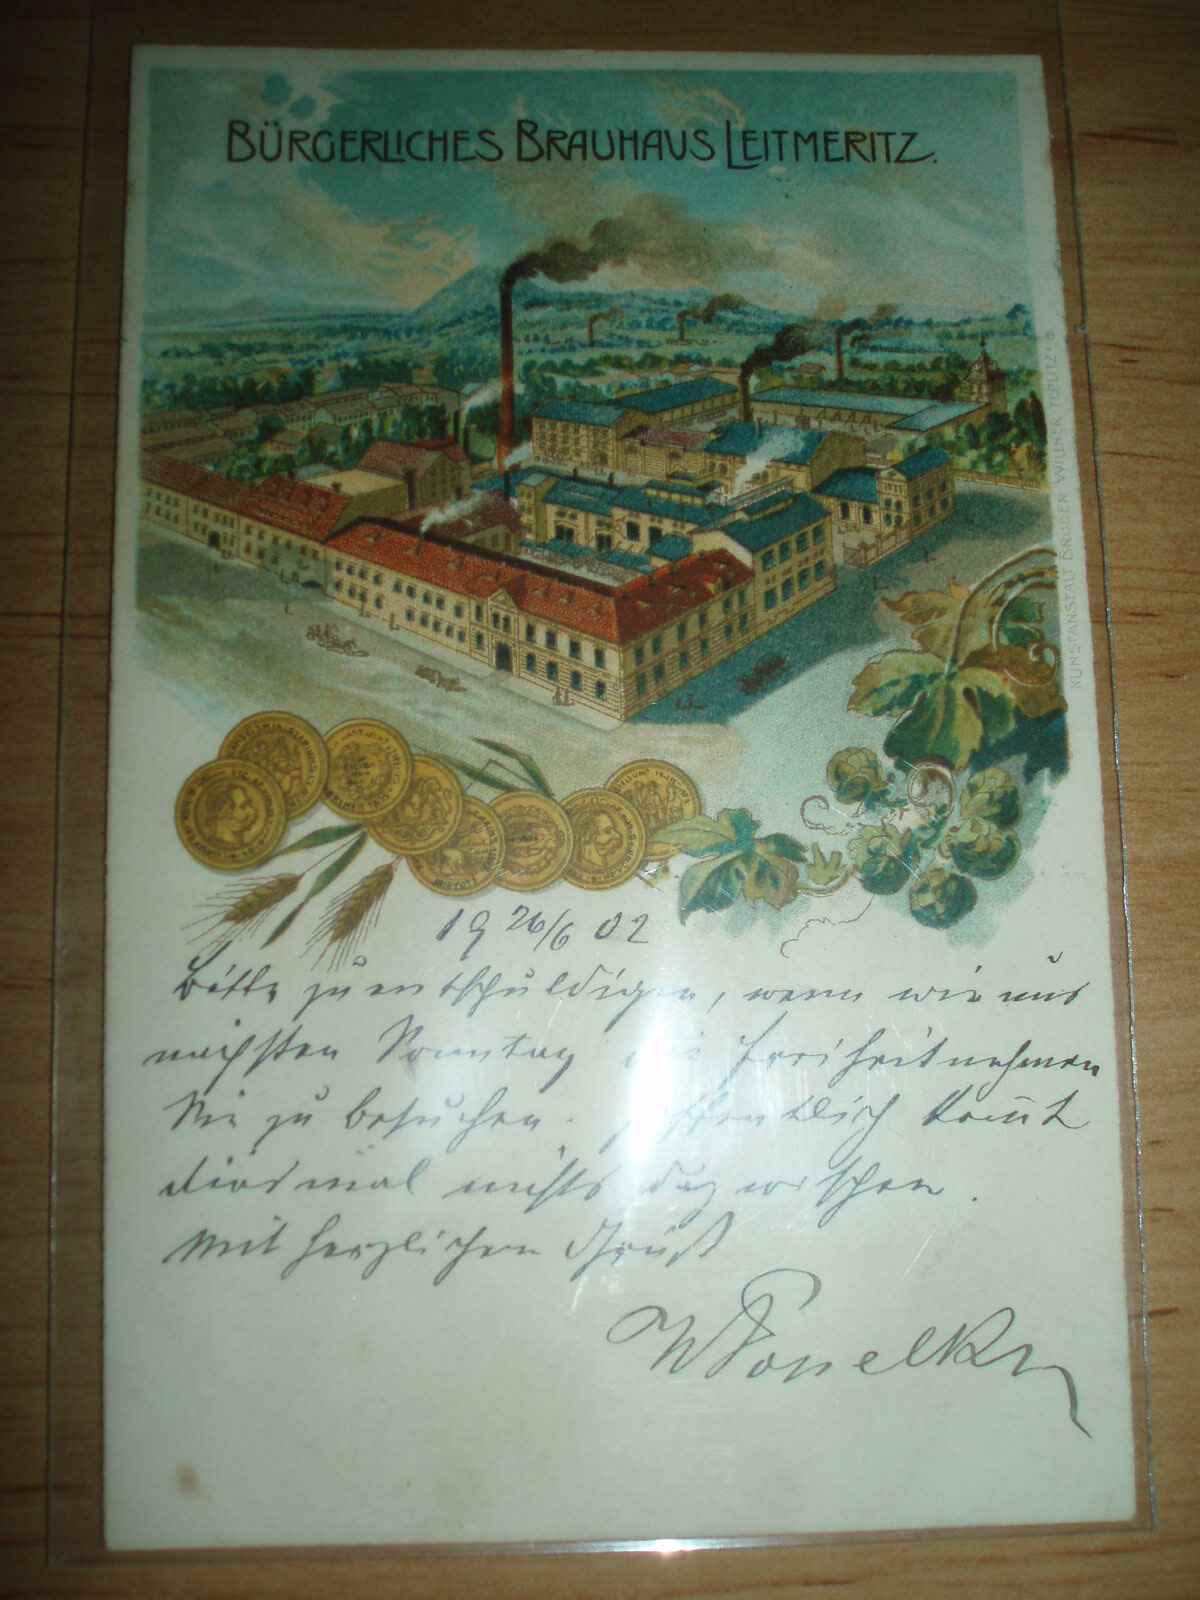 BÜRGERLICHES BRAUHAUS LEITMERITZ.
KUNSTANSTALT BRÜDER WILLNER, TEPLITZ
19 26/6 02
Bitte zu entschuldigen, wenn wir uns
nächsten Sonntag die Freiheit nehmen
Sie zu besuchen. Hoffentlich kommt
diesmal nichts dazwischen.
Mit herzlichen Gruß